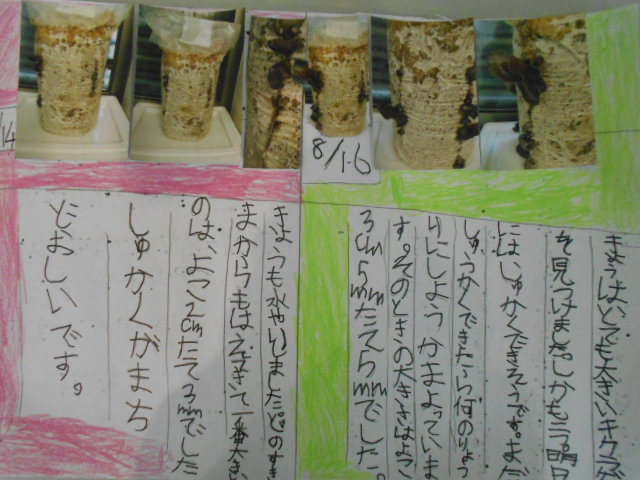 8/16
きょうはとても大きいキクラゲ
を見つけました。しかもう。明日
にはしゅかくできそうです。まだ
しゅうかくできたら何のりょう
りにしようかまよっていま
す。そのときの大きさはよこ
3cm5mmたて5mmでした。
/14
きょうも水やりしました。どのすき
まからもはえてきて一番大きい
のは、よこ2cmたて3mmでした
しゅかくがまち
どおしいです。